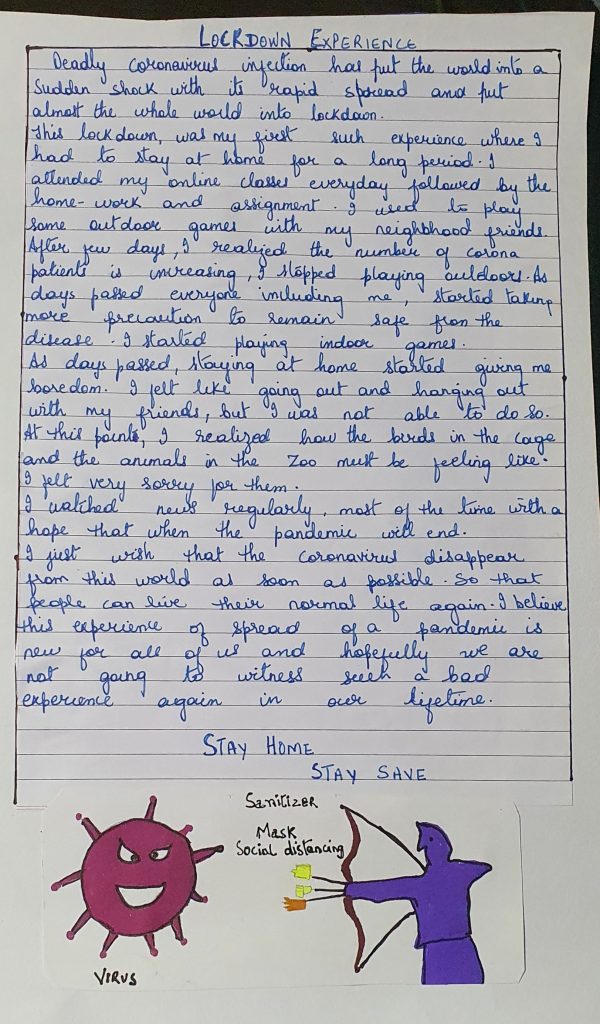 LOCKDOWN EXPERIENCE
Deadly coronavirus infection has put the world into a
sudden shock with its rapid spread and put
almost the whole world into lockdown.
This lockdown, was my first such experience where I
had to stay at home for a long period. I
attended my online classes everyday followed by the
home-work and assignment. I used to play
some outdoor games with my neighbhood friends.
After few days, I realized the number of corona
patients is increasing, I stopped playing outdoors. As
days passed everyone including me, started taking
more precaution to remain safe from the
disease. I started playing indoor games.
As days passed, staying at home started giving me
boredom. I felt like going out and hanging out
with my friends, but I was not able to do so.
At this points, I realized how the birds in the cage
and the animals in the Zoo must be feeling like.
I felt very sorry for them.
I watched news regularly, most of the time with a
hope that when the pandemic will end.
I just wish that the coronavirus disappear
from this world as soon as possible. So that
people can live their normal life again. I believe
this experience of spread of a pandemic is
new for all of us and hopefully we are
not going to witness such a bad
experience again in our lifetime.
STAY HOME
STAY SAVE
Sanitizer
Mask
Social distancing
VIRUS